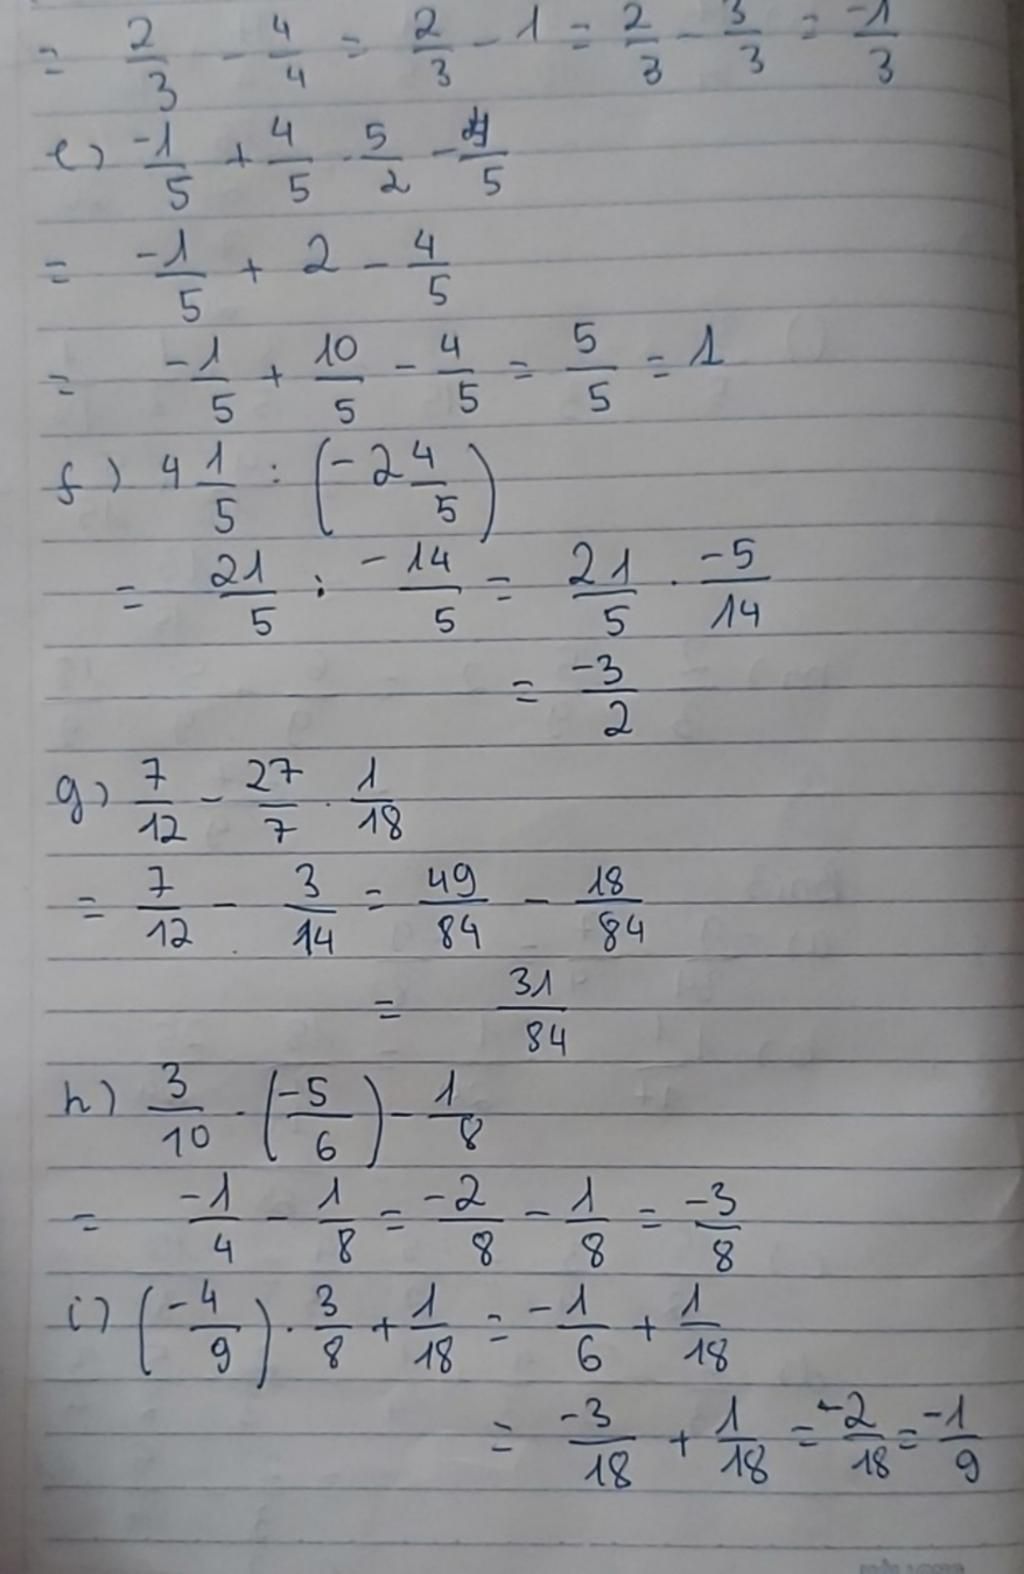 = 2/3 - 4/4 = 2/3 - 1 = 2/3 - 3/3 = -1/3
e) -1/5 + 4/5 . 5/2 - 4/5
= -1/5 + 2 - 4/5
= -1/5 + 10/5 - 4/5 = 5/5 = 1
f) 4 1/5 : (-2 4/5)
= 21/5 : -14/5 = 21/5 . -5/14
= -3/2
g) 7/12 - 27/7 . 1/18
= 7/12 - 3/14 = 49/84 - 18/84
= 31/84
h) 3/10 . (-5/6) - 1/8
= -1/4 - 1/8 = -2/8 - 1/8 = -3/8
i) (-4/9) . 3/8 + 1/18 = -1/6 + 1/18
= -3/18 + 1/18 = -2/18 = -1/9